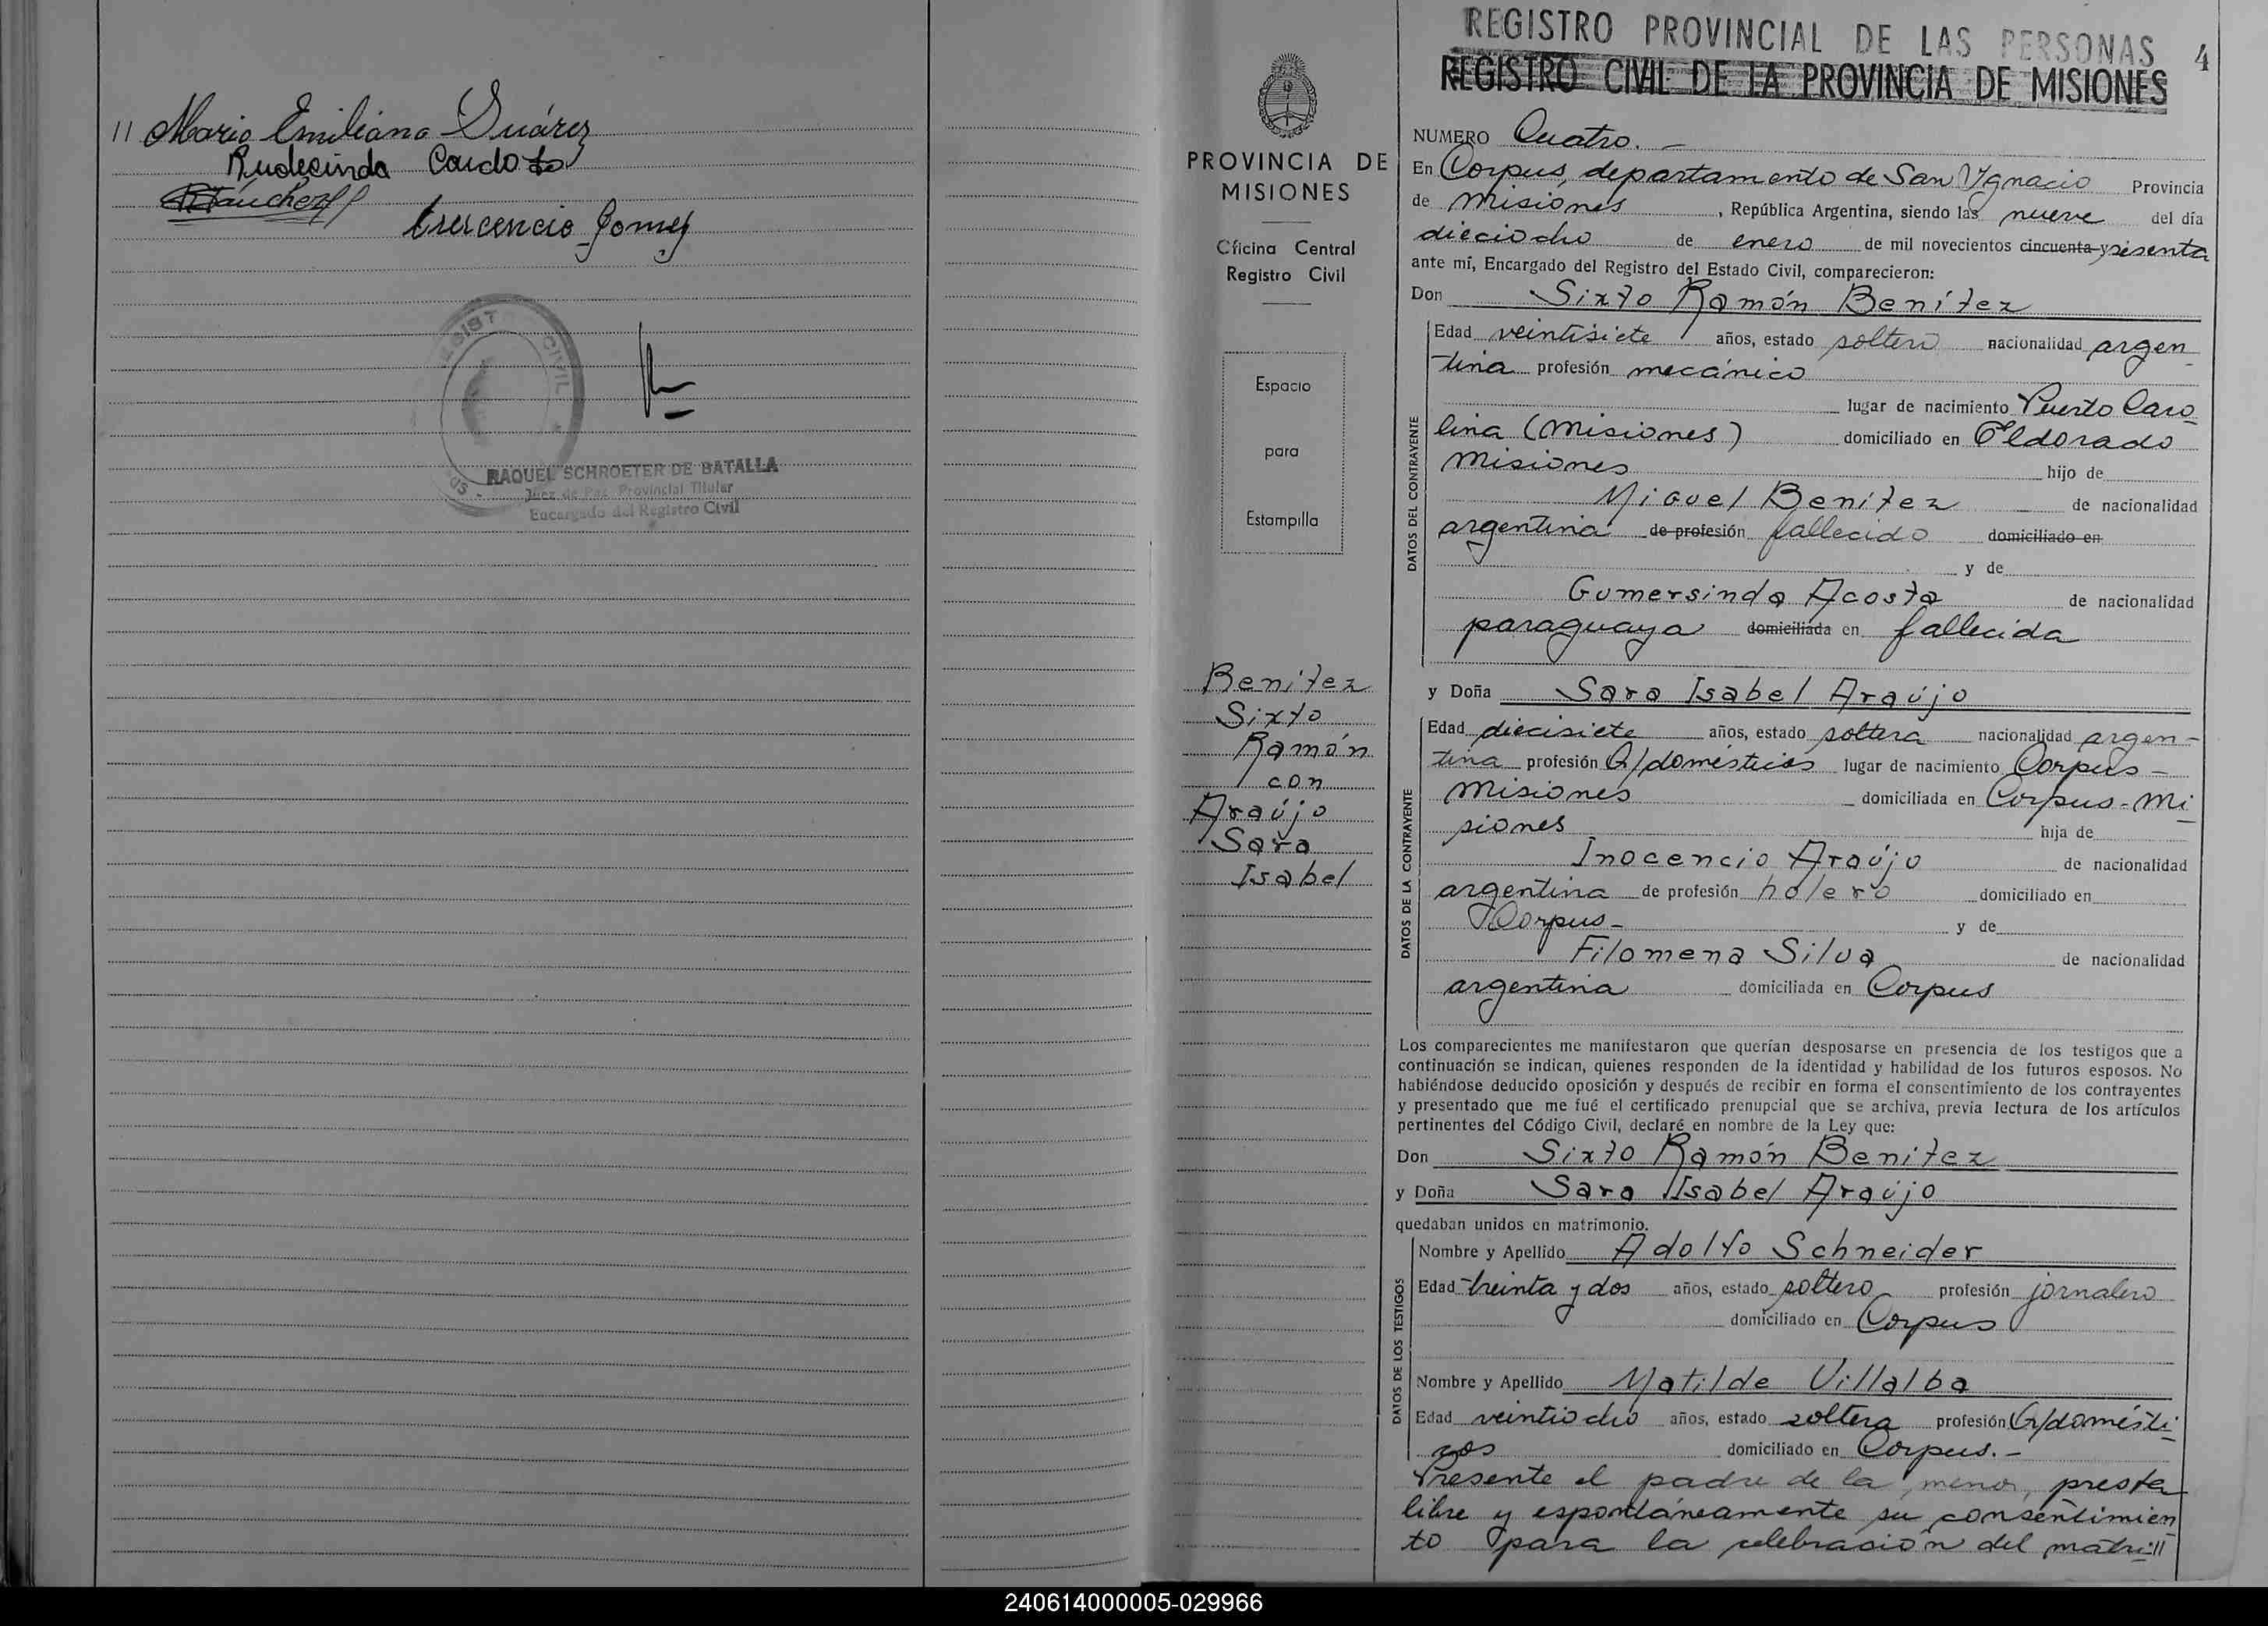 11 Mario Emiliano Suárez
Rudecinda Cardozo
Crescencio Gomez
REGIST CIVIL
RAQUEL SCHROETER DE BATALLA
Juez de Paz Provincial Titular
Encargado del Registro Civil
PROVINCIA DE
MISIONES
Oficina Central
Registro Civil
Espacio
para
Estampilla
Benítez
Sixto
Ramón
con
Araújo
Sara
Isabel
REGISTRO PROVINCIAL DE LAS PERSONAS 4
REGISTRO CIVIL DE LA PROVINCIA DE MISIONES
NUMERO Cuatro. -
En Corpus, departamento de San Ygnacio Provincia
de Misiones, República Argentina, siendo las nueve del día
dieciocho de enero de mil novecientos cincuenta y sesenta
ante mí, Encargado del Registro del Estado Civil, comparecieron:
Don Sixto Ramón Benítez
DATOS DEL CONTRAYENTE
Edad veintisiete años, estado soltero nacionalidad argen-
tina profesión mecánico
lugar de nacimiento Puerto Caro
lina (Misiones) domiciliado en Eldorado
Misiones hijo de
Miguel Benítez de nacionalidad
argentina de profesión fallecido domiciliado en
y de
Gumersinda Acosta de nacionalidad
paraguaya domiciliada en fallecida
y Doña Sara Isabel Araújo
DATOS DE LA CONTRAYENTE
Edad diecisiete años, estado soltera nacionalidad argen-
tina profesión Q/domésticos lugar de nacimiento Corpus-
Misiones domiciliada en Corpus-Mi
siones hija de
Inocencio Araújo de nacionalidad
argentina de profesión holero domiciliado en
Corpus- y de
Filomena Silva de nacionalidad
argentina domiciliada en Corpus
Los comparecientes me manifestaron que querían desposarse en presencia de los testigos que a
continuación se indican, quienes responden de la identidad y habilidad de los futuros esposos. No
habiéndose deducido oposición y después de recibir en forma el consentimiento de los contrayentes
y presentado que me fué el certificado prenupcial que se archiva, previa lectura de los artículos
pertinentes del Código Civil, declaré en nombre de la Ley que:
Don Sixto Ramón Benítez
y Doña Sara Isabel Araújo
quedaban unidos en matrimonio.
DATOS DE LOS TESTIGOS
Nombre y Apellido Adolfo Schneider
Edad treinta y dos años, estado soltero profesión jornalero
domiciliado en Corpus
Nombre y Apellido Matilde Villalba
Edad veintiocho años, estado soltera profesión Q/domésti-
cos domiciliado en Corpus.-
Presente el padre de la menor, presta
libre y espontáneamente su consentimien
to para la celebración del matri-11
240614000005-029966